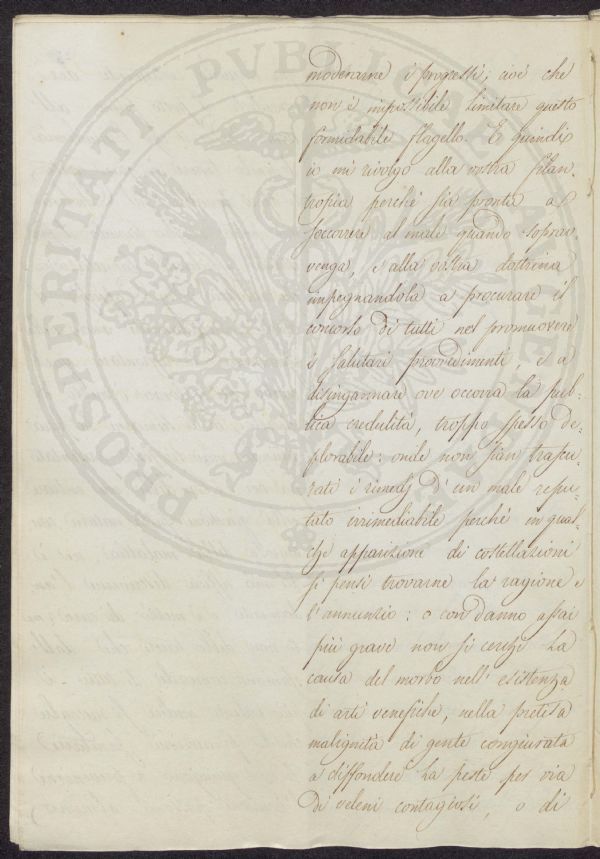 moderarne i progressi; cioè che
non è impossibile limitare questo
formidabile flagello. E quindi
io mi rivolgo alla vostra filan-
tropia perchè sia pronta a
soccorrere al male quando soprav
venga, e alla vostra dottrina
impegnandola a procurare il
concorso di tutti nel promuovere
i salutari provvedimenti, e a
disingannare ove occorra la pub-
lica credulità, troppo spesso de-
plorabile: onde non sian trascu-
rati i rimedj d'un male repu-
tato irrimediabile perchè in qual-
che apparizione di costellazioni
si pensi trovarne la ragione e
l'annunzio: o con danno assai
più grave non si cerchi la
causa del morbo nell'esistenza
di arti venefiche, nella pretesa
malignità di gente congiurata
a diffondere la peste per via
di veleni contagiosi, o di
PROSPERITATI PVBLICAE AVGENDAE